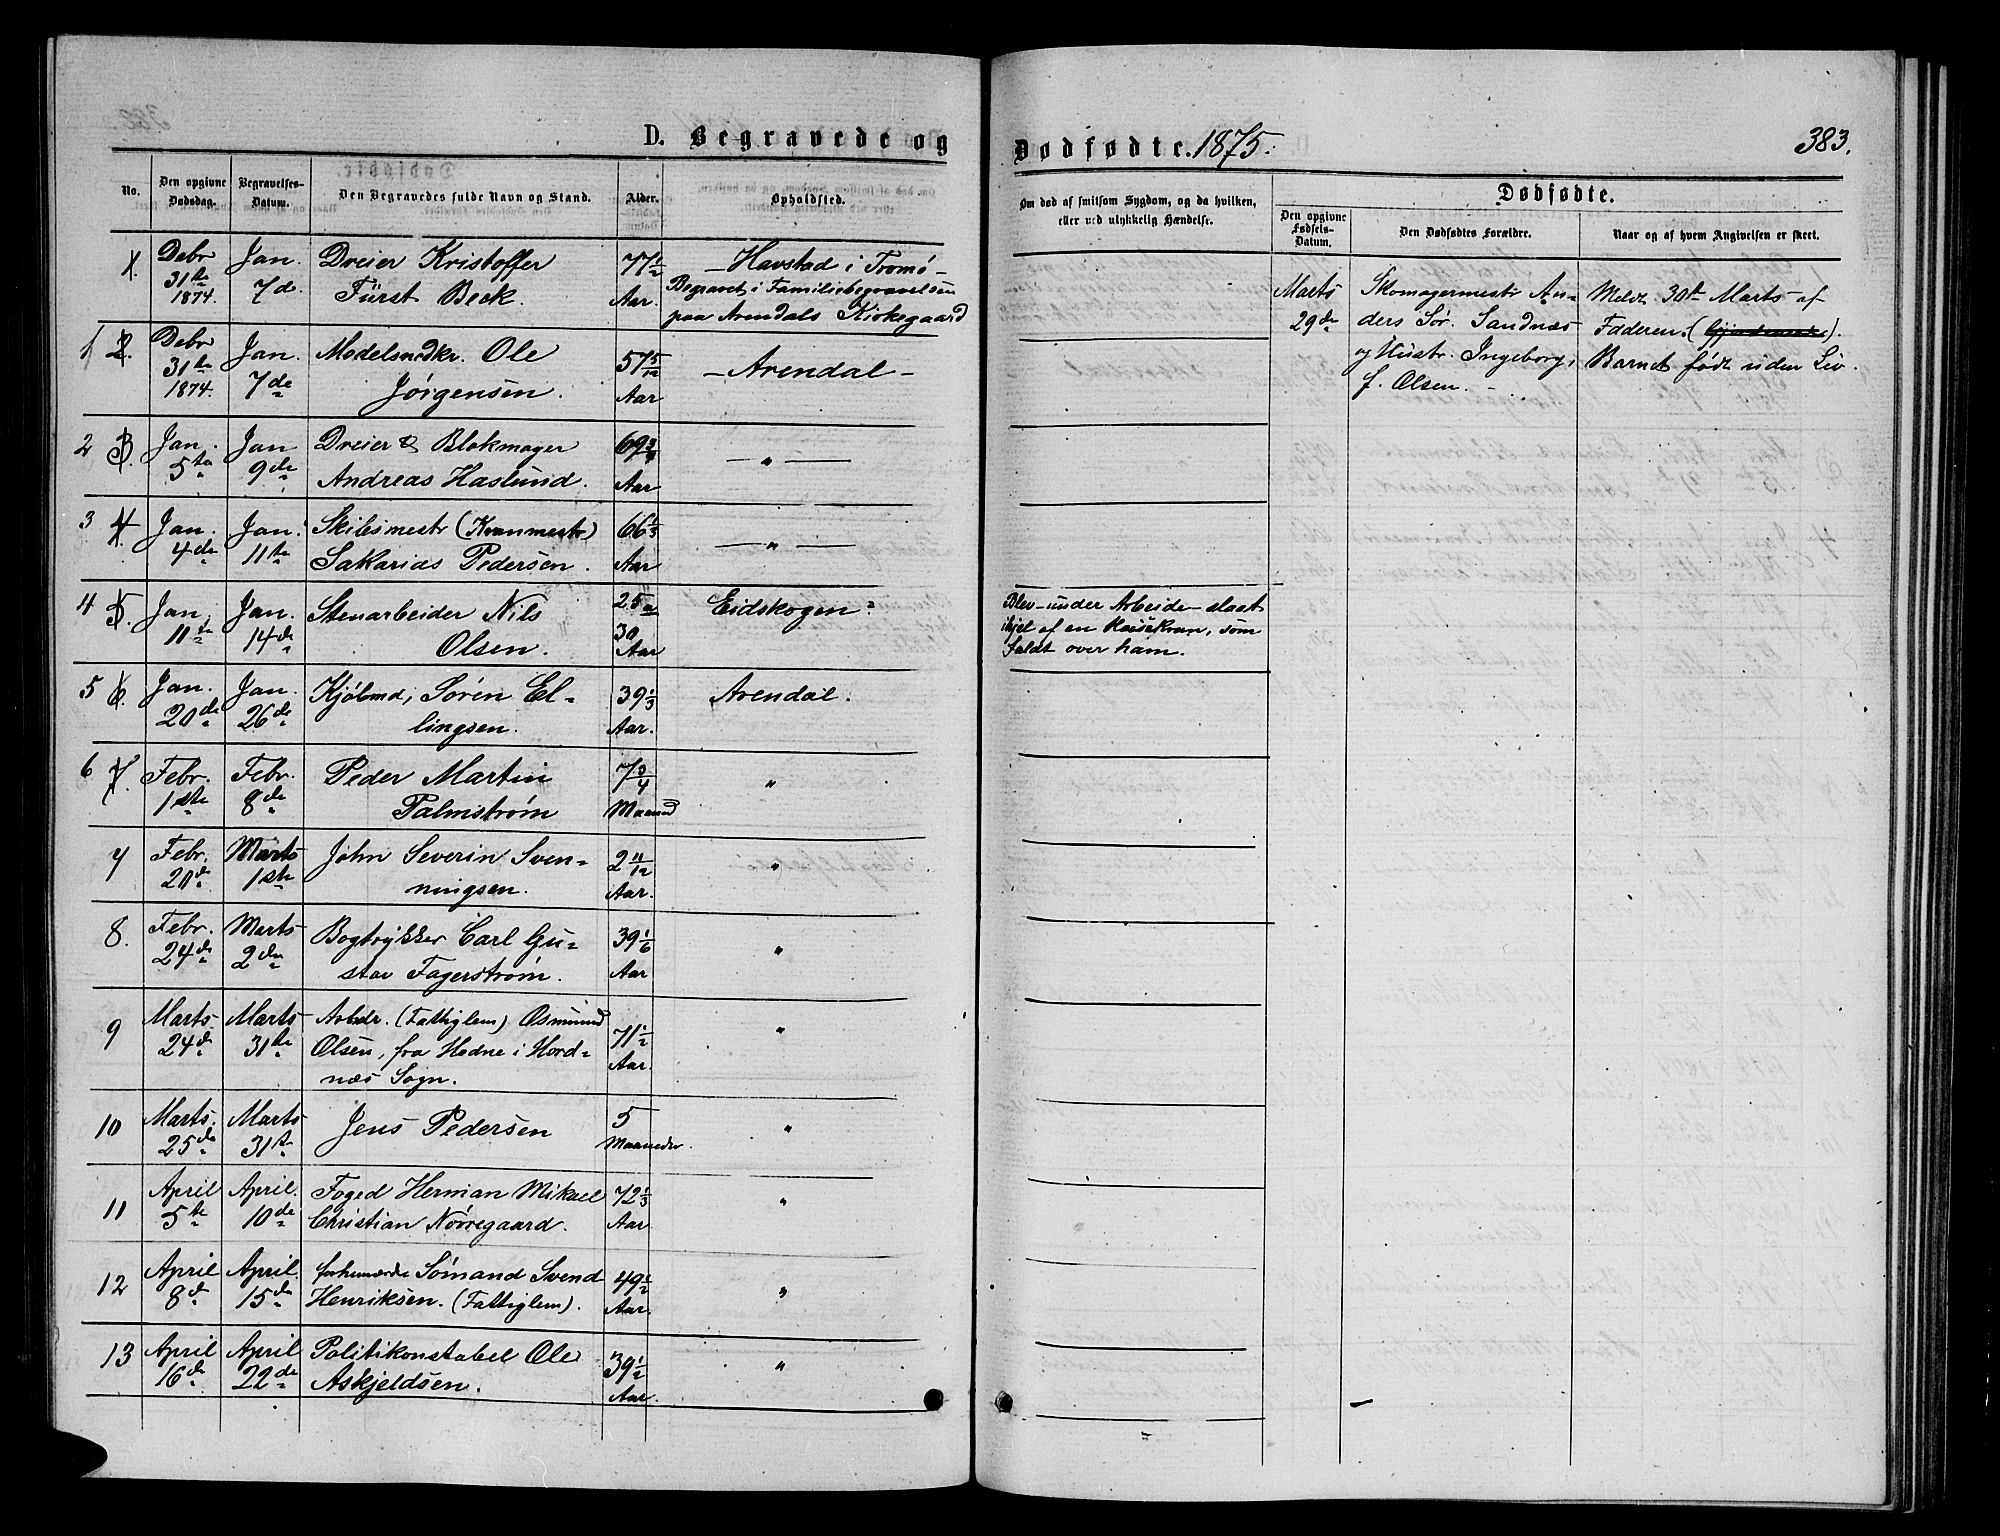 D. Begravede og
Dødfødte. 1875.
383.
No.
Den opgivne Dødsdag.
Begravelses-Datum.
Den Begravedes fulde Navn og Stand.
Alder.
Opholdsted.
Om død af smitsom Sygdom, og da hvilken,
eller ved ulykkelig Hændelse.
Dødfødte.
Den opgivne Fødsels-Datum.
Den Dødfødtes Forældre.
Naar og af hvem Angivelsen er skeet.
1. Debr 31te 1874. Jan. 7de
Dreier Kristoffer
Fürst Beck.
77 1/2 Aar.
– Havstad i Tromø –
Begravet i Familiebegravelsen
paa Arendals Kirkegaard
1 2. Debr 31te 1874. Jan. 7de
Modelsnedkr. Ole
Jørgensen.
57 5/12 Aar
– Arendal –
2 3. Jan. 5te Jan 9de
Dreier & Blokmager
Andreas Haslund.
69 3/4 Aar
– " –
3 4. Jan. 4de Jan. 11te
Skibsmestr (Kranmestr)
Sakarias Pedersen.
66 1/3 Aar
– " –
4 5. Jan. 11te Jan. 14de
Stenarbeider Nils
Olsen.
25 a 30 Aar
Eidskogen.
Blev under Arbeide slaat
ihjel af en Heisekran, som
faldt over ham.
5 6. Jan. 20de Jan. 26de
Kjøbmd, Sørén El-
lingsen.
39 1/3 Aar.
Arendal.
6 7. Febr. 1ste Febr. 8de
Peder Martin
Palmstrøm
7 3/4 Maaned
"
7 Febr. 20de Marts 1ste
John Severin Sven-
ningsen.
2 11/12 Aar.
"
8. Febr. 24de Marts 2den
Bogtrykker Carl Gu-
stav Fagerstrøm.
39 1/6 Aar
"
9 Marts 24de Marts 31te
Arbdr. (Fattiglem) Osmund
Olsen, fra Hodne i Hord-
næs Sogn.
71 1/2 Aar.
"
10 Marts. 25de Marts 31te
Jens Pedersen
5 Maaneder
"
11 April 5te April. 10de
Foged Herman Mikael
Christian Nørregaard.
72 1/3 Aar.
"
12 April 8de April. 15de
forhenværde Sømand Svend
Henriksen. (Fattiglem).
49 1/2 Aar.
"
13 April 16de April 22de
Politikonstabel Ole
Askjeldsen.
39 1/2 Aar.
"
Marts 29de
Skomagermestr An-
ders Sør. Sandnæs
og Hustr. Ingeborg,
f. Olsen. –
Meldt 30te Marts af
Faderen. ( ).
Barnet født uden Liv.